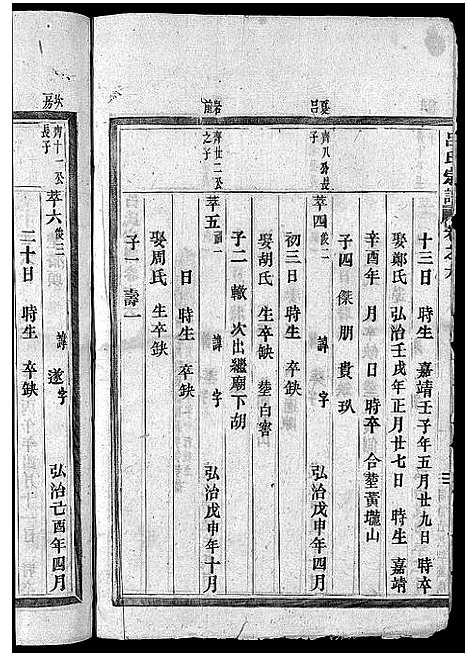 呂氏宗譜 卷之九
十三日 時生 嘉靖壬子年五月廿九日 時卒
娶鄭氏 弘治壬戌年正月廿七日 時生 嘉靖
辛酉年 月 日 時卒 合塟黃壠山
子四 傑 朋 貴 玖
夏呂
齊八公長子
萃四 俊二 諱 字 弘治戊申年四月
初三日 時生 卒缺
娶胡氏 生卒缺 塟白窖山
子二 轍 次出繼廟下胡
岩前
齊廿二公之子
萃五 嗣一 諱 字 弘治戊申年十月
日 時生 卒缺
娶周氏 生卒缺
子一 壽一
嘉
齊十一公長子
萃六 俊三 諱遂 字 弘治己酉年四月
二十日 時生 卒缺